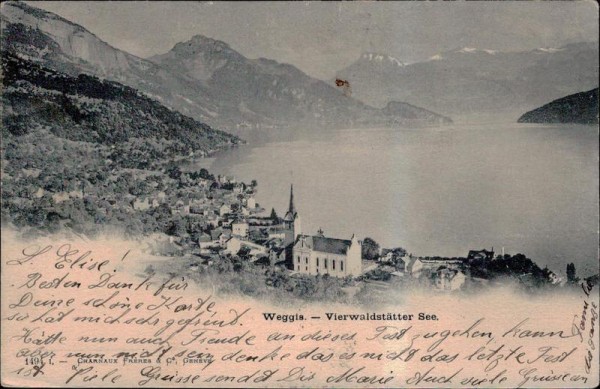 L. Elise!
Besten Dank für
Deine schöne Karte
so hat mich sehr gefreut.
Weggis. — Vierwaldstätter See.
Hätte nun auch Freude an dieses Fest zugehen kann
aber nun nicht sein denke das es nicht das letzte Fest
ist Viele Grüsse sendet Dir Marie Auch viele Grüsse an
1494 CHARNAUX FRÈRES & Cº, GENÈVE